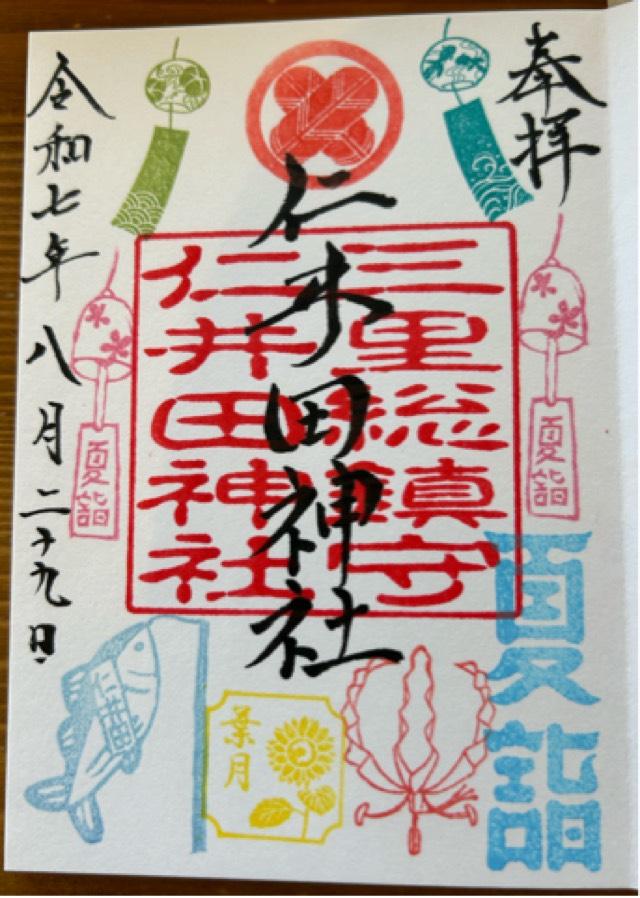 奉拝
三里総鎮守
仁井田神社
仁井田神社
令和七年八月二十九日
夏詣
夏詣
夏詣
仁井田
葉月